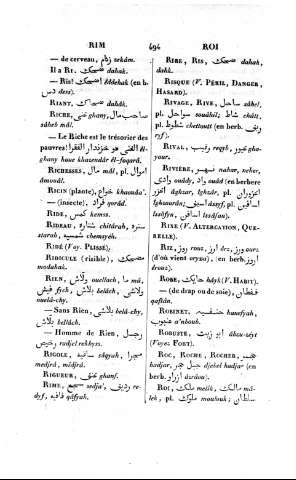 RIM 694 ROI
— de cerveau, زكام zekâm.
Il a Ri. ضحك dahak.
— Ris! اضحك êdêhak (en b.
س dess).
RIANT, ضحّاك dahâk.
RICHE, غني ghany, صاحب مال
sâheb mâl.
— Le Riche est le trésorier des
pauvres! الغني هو خزندار الفقرا êl-
ghany houe khazendâr êl-foqarâ.
RICHESSES, مال mâl, pl. اموال
âmouâl.
RICIN (plante), خروع
— (insecte), قراد qorâd.
RIDE, كمس kemss.
RIDEAU, ستارة chitârah, ستره
starah, شمسيه chemsyêh.
RIDÉ (Voy. PLISSÉ).
RIDICULE (risible), مضحك
modahak.
RIEN, ولاش ouellach, ما
فيش fych, بلاش belâch, ولاشي
ouelâ-chy.
— Sans Rien, بلاشي belâ-chy,
بلاش belâch.
— Homme de Rien, رجل
رخيص radjel rekhyss.
RIGOLE, ساقيه sâqyah, مجرا
medjrâ, mâdjrâ.
RIGUEUR, غنف ghanf.
RIME, سجع sedja', رديف re-
dyf, قافيه qâfyah.
RIRE, RIS, ضحك dahak,
dêhk.
RISQUE (V. PÉRIL, DANGER,
HASARD).
RIVAGE, RIVE, ساحل sâhel,
pl. سواحل souâhil; شاط châtt,
pl. شطوط chettoutt (en berb. ريف
ryf).
RIVAL, رقيب reqyb, غيور ghâ-
your.
RIVIÈRE, نهار nahar, neher,
وادي ouâdy, واد ouâd (en berbere
اغزر âghzar, ighzer, pl. اغزوران
ighzourân; اسيف assyf, pl. اسافين
issâfyn, اسافن issâfan).
RIXE (V. ALTERCATION, QUE-
RELLE).
RIZ, رز rouz, ارز drz, روز ours
(d'où vient oryza) (en berb. روز
drouz).
ROBE, حايك hâyk (V. HABIT).
— (de drap ou de soie), قفطان
qaftân.
ROBINET, حنفيه hanefyah,
عنبوب a'nboub.
ROBUSTE, ابو زيت
(Voyez FORT).
ROC, ROCHE, ROCHER, حجر
hadjar, جبل حجر djebel hadjar (en
berb. ازرو âzrâou).
ROI, ملك melik, مالك mâ-
lek, pl. ملوك moulouk; سلطان